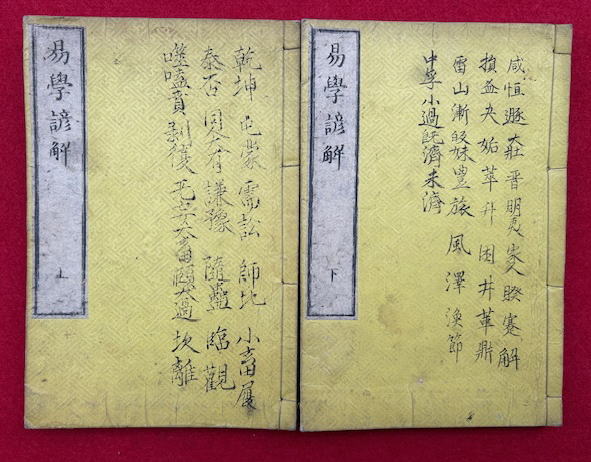 易學諺解
上
乾坤屯蒙需訟師比小畜履
泰否同人大有謙豫隨蠱臨觀
噬嗑賁剥復无妄大畜頤大過坎離
易學諺解
下
咸恒遯大壯晋明夷家人睽蹇解
損益夬姤萃升困井革鼎
雷山漸皈妹豊旅風澤渙節
中孚小過既濟未濟